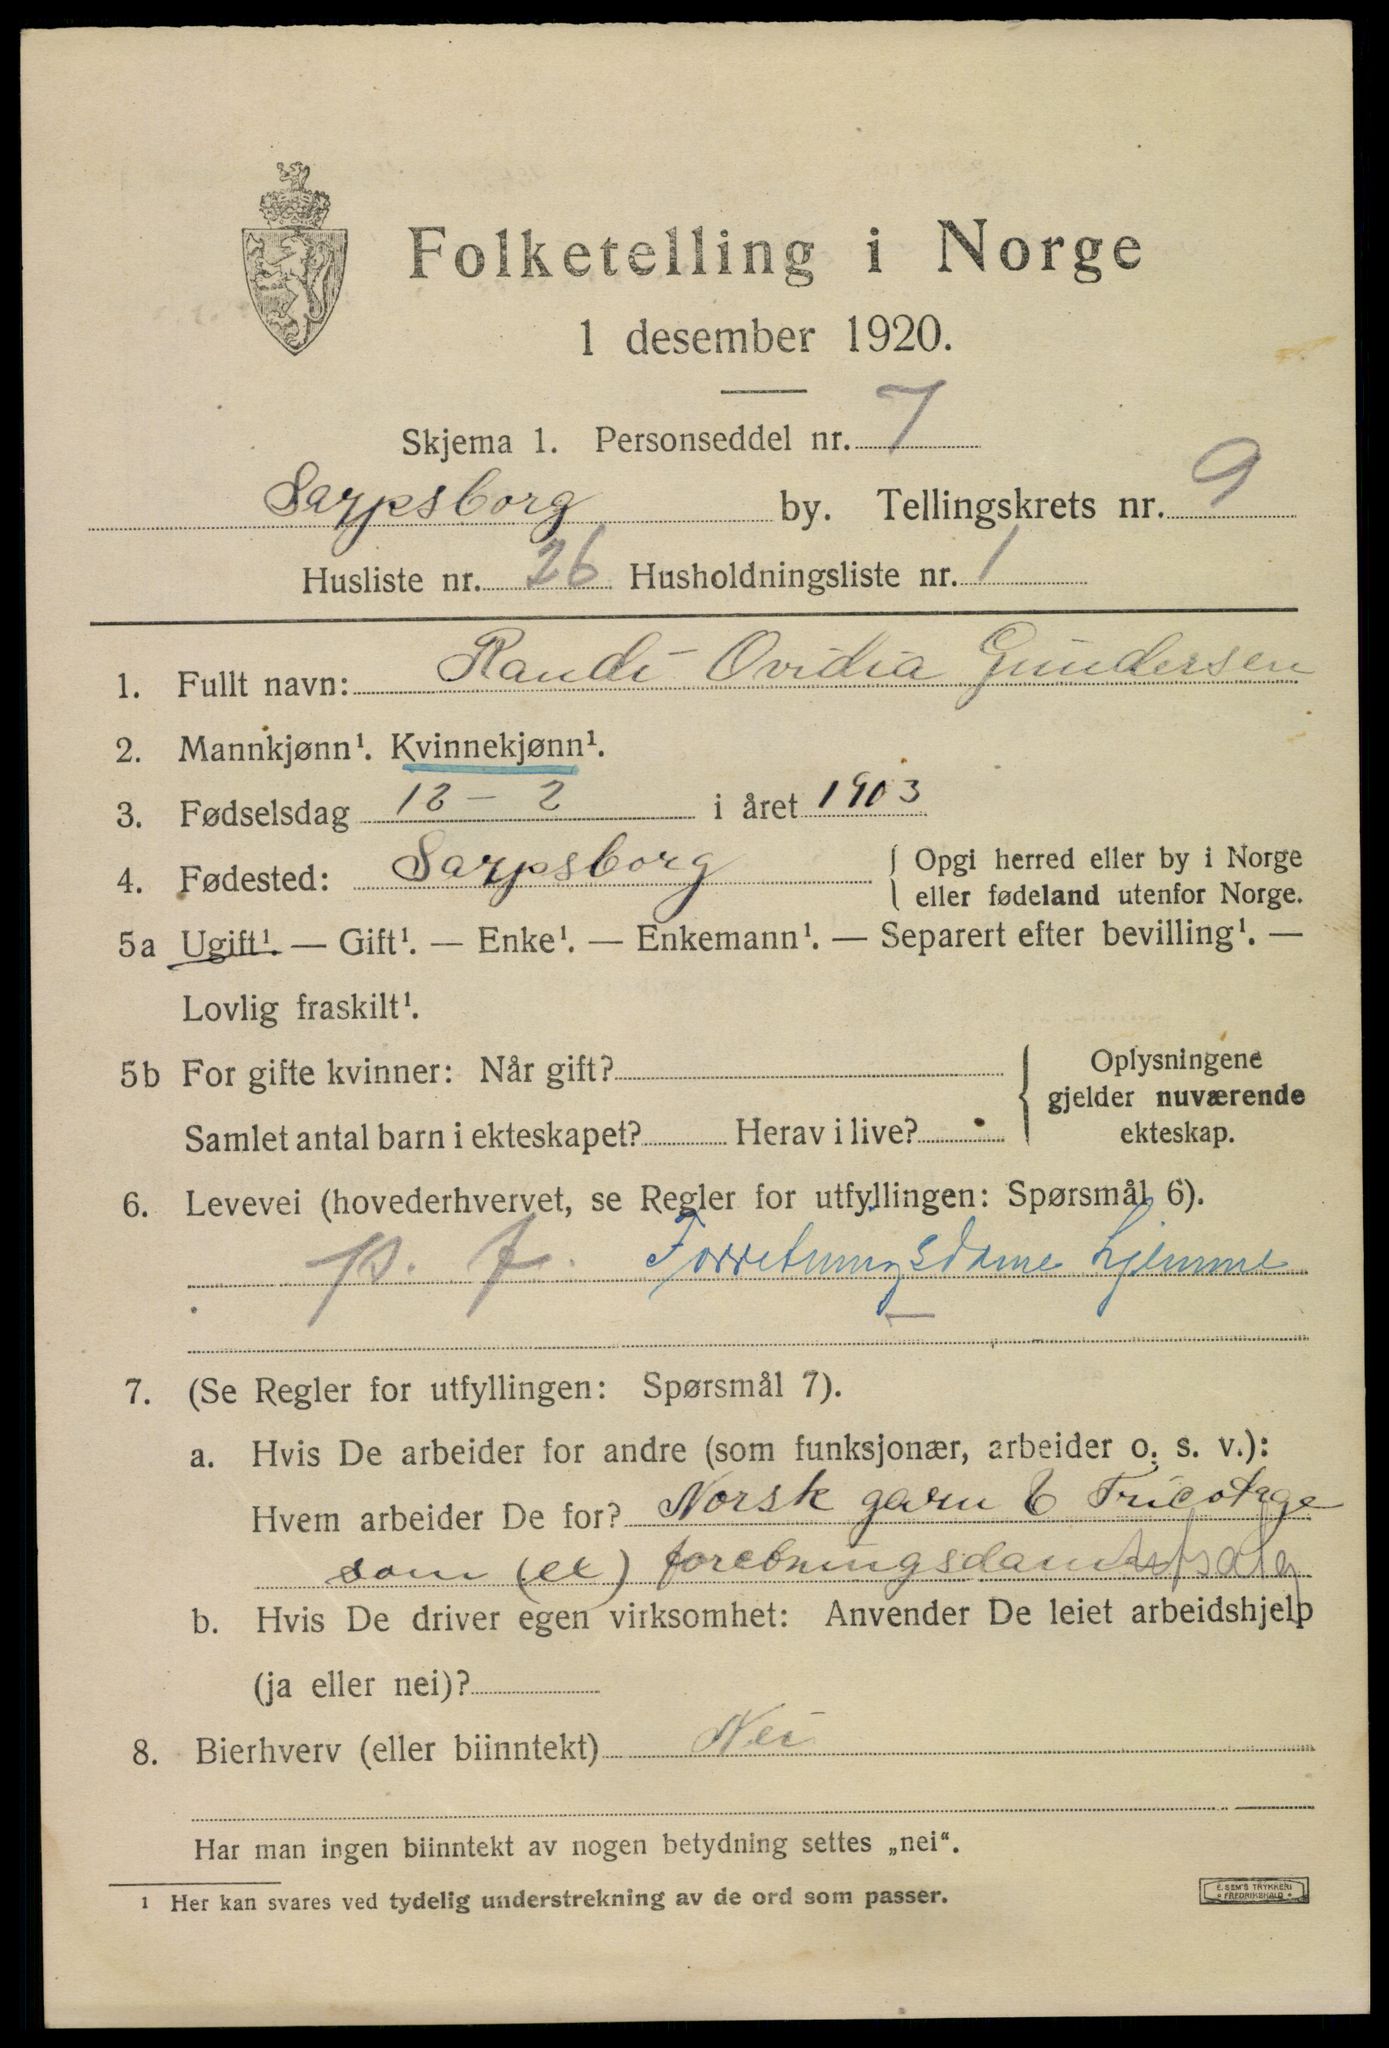 Folketelling i Norge
1 desember 1920.
Skjema 1. Personseddel nr. 7
Sarpsborg by. Tellingskrets nr. 9
Husliste nr. 26 Husholdningsliste nr. 1
1. Fullt navn: Randi Ovidia Gundersen
2. Mannkjønn¹. Kvinnekjønn¹.
3. Fødselsdag 12 - 2 i året 1903
4. Fødested: Sarpsborg { Opgi herred eller by i Norge
eller fødeland utenfor Norge.
5a Ugift¹. — Gift¹. — Enke¹. — Enkemann¹. — Separert efter bevilling¹. —
Lovlig fraskilt¹.
5b For gifte kvinner: Når gift? { Oplysningene
gjelder nuværende
Samlet antal barn i ekteskapet? Herav i live? ekteskap.
6. Levevei (hovederhvervet, se Regler for utfyllingen: Spørsmål 6).
p. f. Forretningsdame hjemme
7. (Se Regler for utfyllingen: Spørsmål 7).
a. Hvis De arbeider for andre (som funksjonær, arbeider o. s. v.):
Hvem arbeider De for? Norsk garn & Tricotage
som (et) foretningsdame
b. Hvis De driver egen virksomhet: Anvender De leiet arbeidshjelp
(ja eller nei)?
8. Bierhverv (eller biinntekt) Nei
Har man ingen biinntekt av nogen betydning settes „nei“.
¹ Her kan svares ved tydelig understrekning av de ord som passer.
E. SEM'S TRYKKERI
• FREDRIKSHALD •